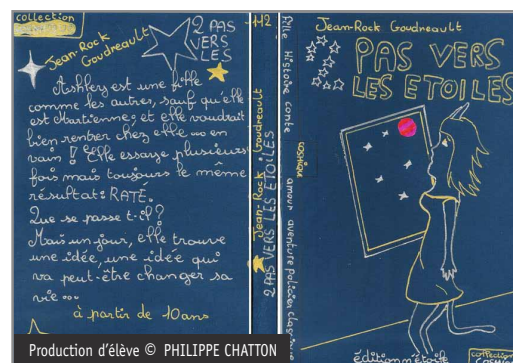 collection
Jean-Rock
Goudreault
2 PAS
VERS
LES
Ashley est une fille
comme les autres, sauf qu'elle
est Martienne et elle voudrait
bien rentrer chez elle ... en
vain ! Elle essaye plusieurs
fois mais toujours le même
résultat: RATÉ.
Que se passe t-il?
Mais un jour, elle trouve
une idée, une idée qui
va peut-être changer sa
vie ...
à partir de 10 ans
Production d'élève © PHILIPPE CHATTON
112
Jean-Rock Goudreault
2 PAS VERS LES ETOILES
Histoire conte
COSMIQUE
amour aventure policier classique
Jean-Rock Goudreault
PAS VERS
LES ETOILES
édition m'étoile
collection